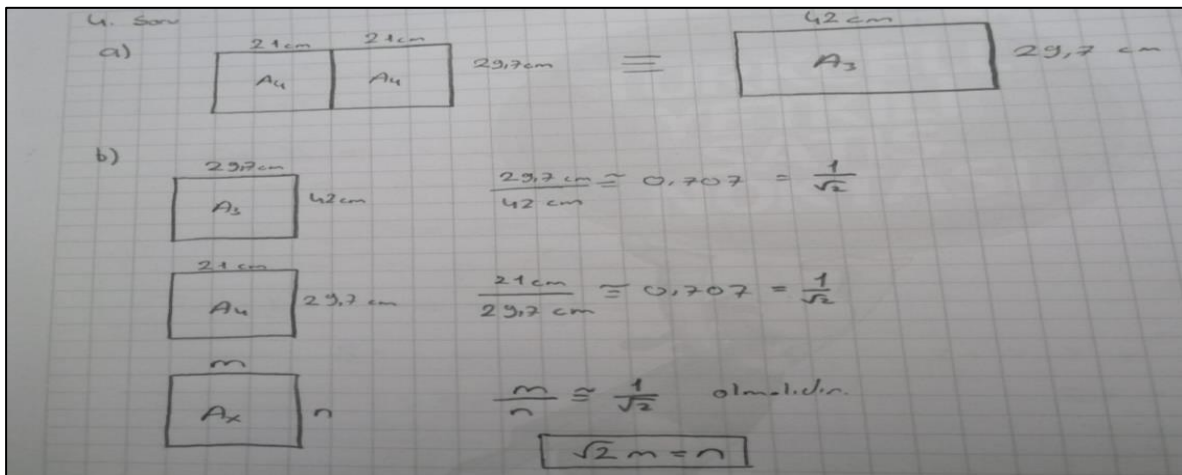 4. Soru
a)
21cm 21cm
A4 A4 29,7cm ≡ 42 cm A3 29,7 cm
b)
29,7cm
A3 42cm
29,7 cm / 42 cm ≅ 0,707 = 1/√2
21 cm
A4 29,7 cm
21cm / 29,7 cm ≅ 0,707 = 1/√2
m
Ax n
m/n ≅ 1/√2 olmalıdır.
√2 m = n